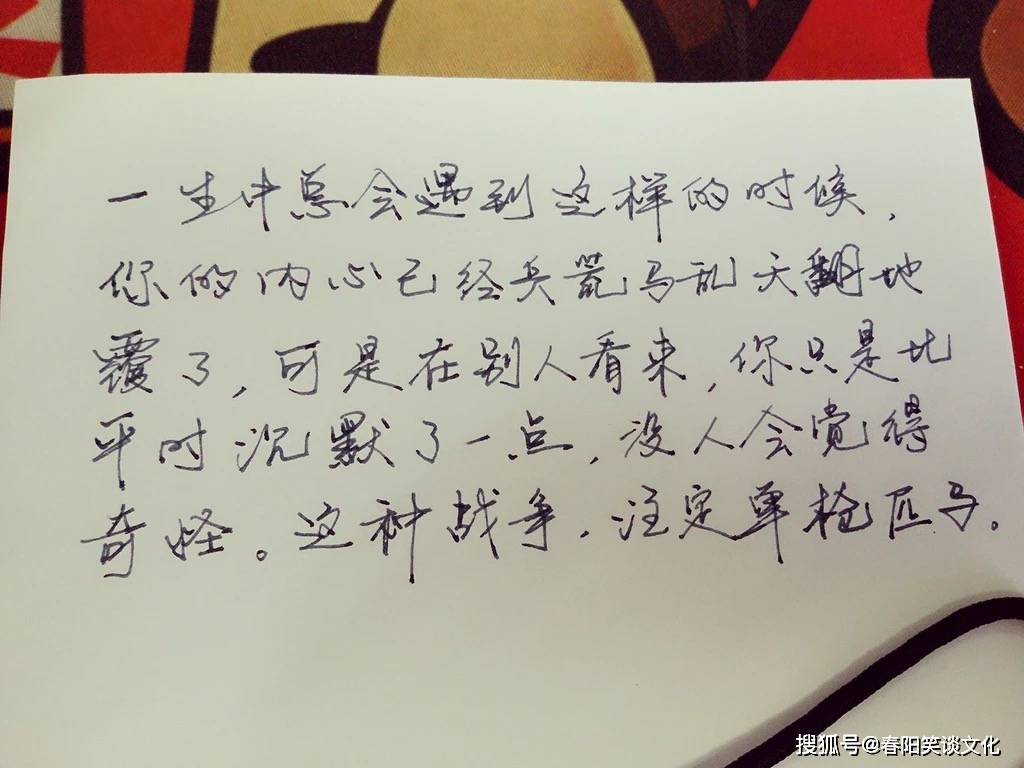 一生中总会遇到这样的时候，
你的内心已经兵荒马乱天翻地
覆了，可是在别人看来，你只是比
平时沉默了一点，没人会觉得
奇怪。这种战争，注定单枪匹马。
搜狐号@春阳笑谈文化